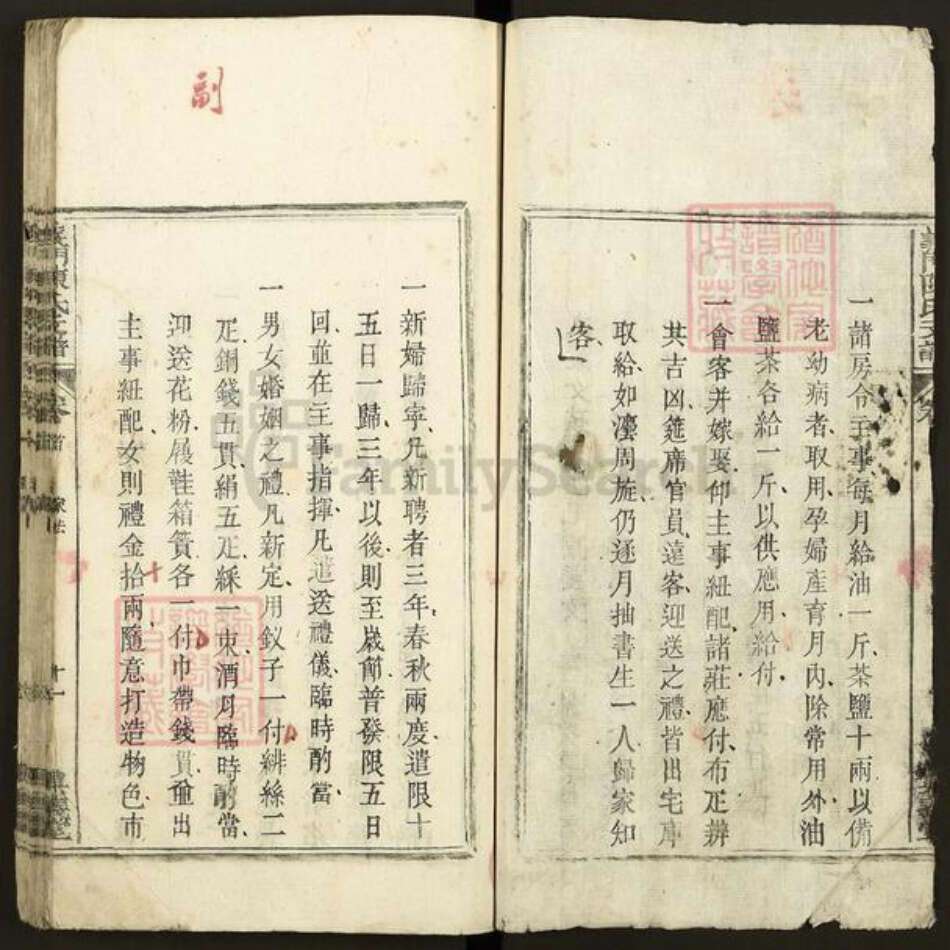 一諸房令主事每月給油一斤、茶鹽十兩以備
老幼病者、取用、孕婦產育月內、除常用外、油
鹽茶各給一斤、以供應用、給付、
一會客并嫁娶、仰主事紐配諸莊應付、布疋辨
其吉凶、筵席官員、遠客、迎送之禮、皆出宅庫
取給、如灋周旋、仍逐月抽書生一人、歸家知
客、
副
一新婦歸寧、凡新聘者三年、春秋兩度、遣限十
五日一歸、三年以後、則至歲節普發、限五日
回、並在主事指揮、凡遣送禮儀、臨時酌當、
一男女婚姻之禮、凡新定、用釵子一付、緋絲二
疋、銅錢五貫、絹五疋、綵一束、酒肉臨時酌當、
迎送花粉、履鞋、箱篢各一付、巾帶錢一貫、並出
主事紐配、女則禮金拾兩、隨意打造物色、市
義門陳氏文譜
卷首
家法
十一
FamilySearch